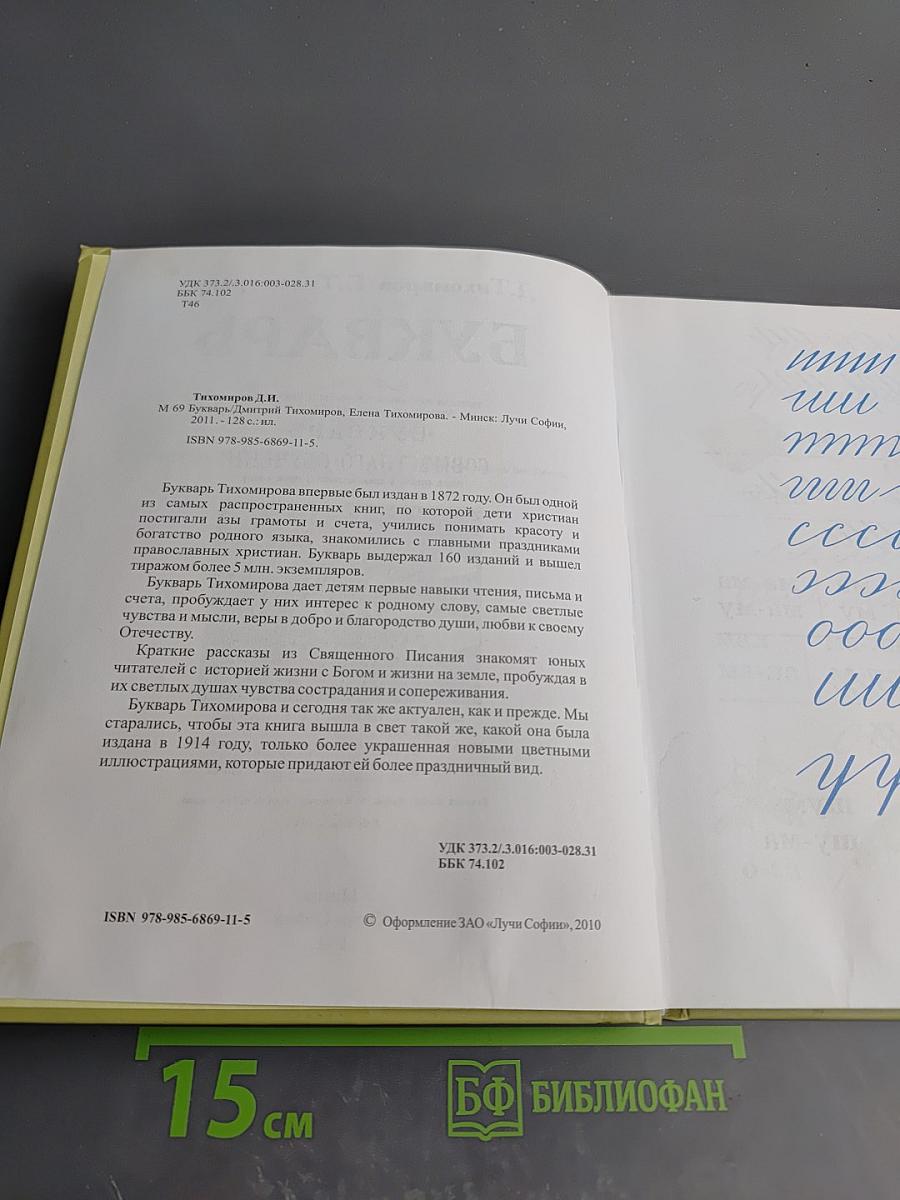 УДК 373.2/.3.016:003-028.31
ББК 74.102
Т46
Тихомиров Д.И.
М 69 Букварь/Дмитрий Тихомиров, Елена Тихомирова. - Минск: Лучи Софии,
2011. - 128 с.: ил.
ISBN 978-985-6869-11-5.
Букварь Тихомирова впервые был издан в 1872 году. Он был одной
из самых распространенных книг, по которой дети христиан
постигали азы грамоты и счета, учились понимать красоту и
богатство родного языка, знакомились с главными праздниками
православных христиан. Букварь выдержал 160 изданий и вышел
тиражом более 5 млн. экземпляров.
Букварь Тихомирова дает детям первые навыки чтения, письма и
счета, пробуждает у них интерес к родному слову, самые светлые
чувства и мысли, веры в добро и благородство души, любви к своему
Отечеству.
Краткие рассказы из Священного Писания знакомят юных
читателей с историей жизни с Богом и жизни на земле, пробуждая в
их светлых душах чувства сострадания и сопереживания.
Букварь Тихомирова и сегодня так же актуален, как и прежде. Мы
старались, чтобы эта книга вышла в свет такой же, какой она была
издана в 1914 году, только более украшенная новыми цветными
иллюстрациями, которые придают ей более праздничный вид.
УДК 373.2/.3.016:003-028.31
ББК 74.102
ISBN 978-985-6869-11-5
© Оформление ЗАО «Лучи Софии», 2010
15 см
БФ БИБЛИОФАН